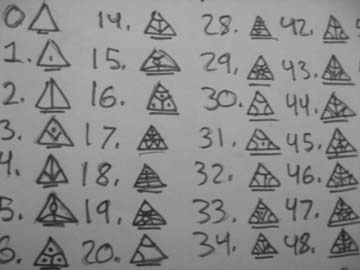 0 14. 28. 42.
1. 15. 29. 43.
2. 16. 30. 44.
3. 17. 31. 45.
4. 18. 32. 46.
5. 19. 33. 47.
6. 20. 34. 48.